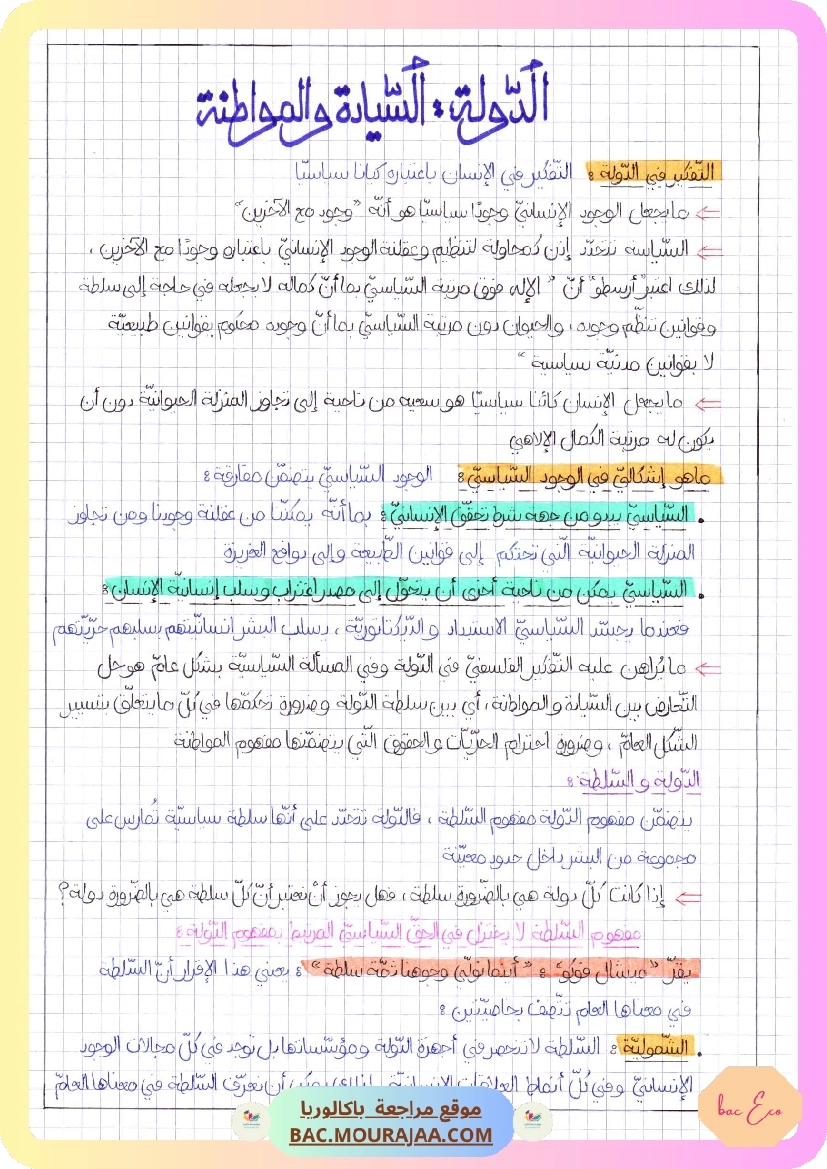 الدّولة : السّيادة والمواطنة
التّفكير في الدّولة : التّفكير في الإنسان باعتباره كيانا سياسيّا
⇐ ما يجعل الوجود الإنسانيّ وجودًا سياسيّا هو أنّه "وجود مع الآخرين"
⇐ السّياسة تتحدّد إذن كمحاولة لتنظيم وعقلنة الوجود الإنسانيّ باعتباره وجودًا مع الآخرين ،
لذلك اعتبر أرسطو أنّ " الإله فوق مرتبة السّياسيّ بما أنّ كماله لا يجعله في حاجة إلى سلطة
وقوانين تنظّم وجوده ، والحيوان دون مرتبة السّياسيّ بما أنّ وجوده محكوم بقوانين طبيعيّة
لا بقوانين مدنيّة سياسية "
⇐ ما يجعل الإنسان كائنا سياسيّا هو سعيه من ناحية إلى تجاوز المنزلة الحيوانيّة دون أن
يكون له مرتبة الكمال الإلاهي
ماهو إشكاليّ في الوجود السّياسيّ : الوجود السّياسيّ يتضمّن مفارقة :
. السّياسيّ يبدو من جهة شرط تحقّق الإنسانيّ : بما أنّه يمكّننا من عقلنة وجودنا ومن تجاوز
المنزلة الحيوانيّة الّتي تحتكم إلى قوانين الطّبيعة وإلى دوافع الغريزة
. السّياسيّ يمكن من ناحية أخرى أن يتحوّل إلى مصدر اغتراب وسلب إنسانيّة الإنسان :
فعندما يجسّد السّياسيّ الاستبداد والدّيكتاتوريّة ، يسلب البشر انسانيّتهم بسلبهم حرّيّتهم
⇐ ما يُراهن عليه التّفكير الفلسفيّ في الدّولة وفي المسألة السّياسيّة بشكل عامّ هو حل
التّعارض بين السّيادة والمواطنة ، أي بين سلطة الدّولة وضرورة تحكمّها في كلّ ما يتعلّق بتسيير
الشّكل العامّ ، وضرورة احترام الحرّيّات والحقوق الّتي يتضمّنها مفهوم المواطنة
الدّولة والسّلطة :
يتضمّن مفهوم الدّولة مفهوم السّلطة ، فالدّولة تتحدّد على أنّها سلطة سياسيّة تُمارس على
مجموعة من البشر داخل حدود معيّنة
⇐ إذا كانت كلّ دولة هي بالضّرورة سلطة ، فهل يجوز أنْ نعتبر أنّ كلّ سلطة هي بالضّرورة دولة ؟
مفهوم السّلطة لا يختزل في الحقّ السّياسيّ المرتبط بمفهوم الدّولة :
يقرّ "ميشال فوكو" : "أينما نولّي وجوهنا ثمّة سلطة" : يعني هذا الإقرار أنّ السّلطة
في معناها العام تتّصف بخاصيّتين :
. الشّموليّة : السّلطة لا تنحصر في أجهزة الدّولة ومؤسّساتها بل توجد في كلّ مجالات الوجود
الإنسانيّ وفي كُلّ أنماط العلاقات الإنسانيّة لذلك يمكن أن نعرّف السّلطة في معناها العامّ
موقع مراجعة باكالوريا
BAC.MOURAJAA.COM
bac Eco